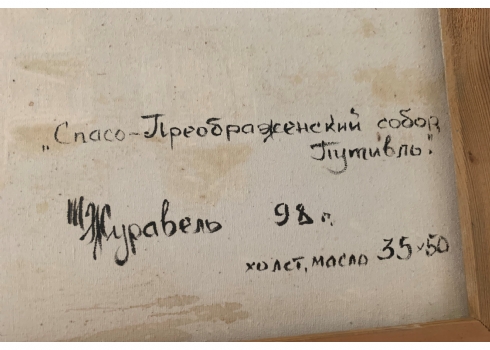 „Спасо-Преображенский собор
Путивль".
ТЖуравель 98 г.
холст, масло 35×50